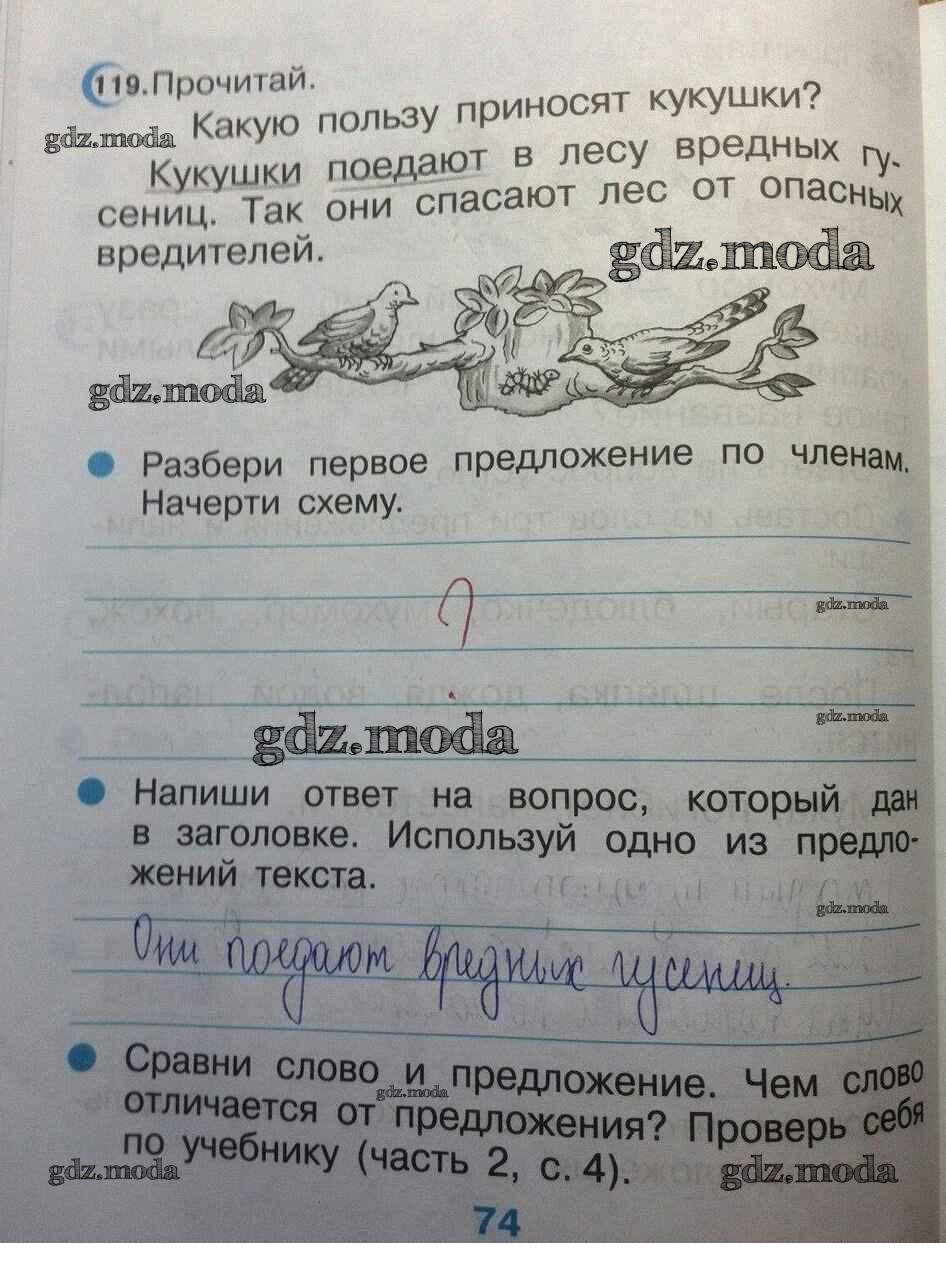 119. Прочитай.
Какую пользу приносят кукушки?
gdz.moda
Кукушки поедают в лесу вредных гу-
сениц. Так они спасают лес от опасных
вредителей.
gdz.moda
gdz.moda
Разбери первое предложение по членам.
Начерти схему.
?
gdz.moda
gdz.moda
gdz.moda
Напиши ответ на вопрос, который дан
в заголовке. Используй одно из предло-
жений текста.
gdz.moda
Они поедают вредных гусениц.
Сравни слово и предложение. Чем слово
gdz.moda
отличается от предложения? Проверь себя
по учебнику (часть 2, с. 4).
gdz.moda
gdz.moda
74